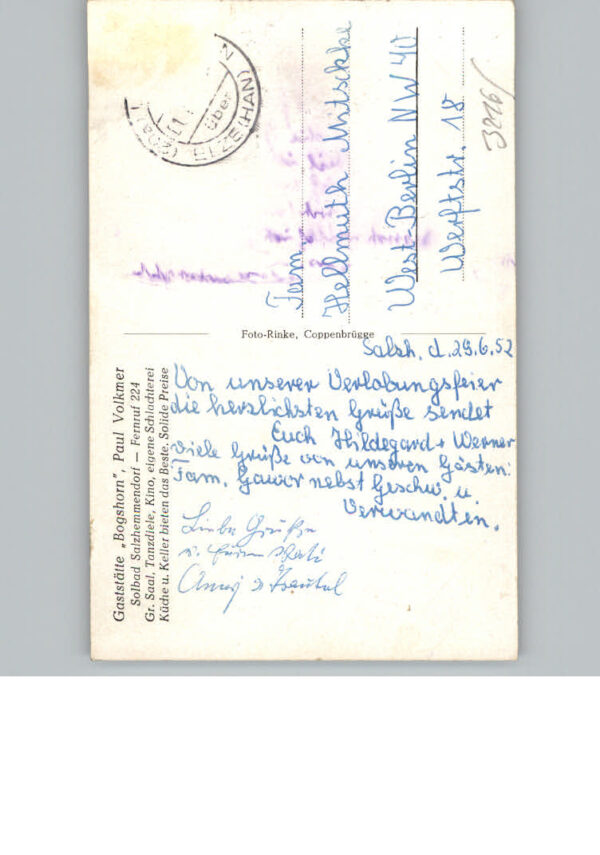 Gaststätte „Bogshorn”, Paul Volkmer
Solbad Salzhemmendorf — Fernruf 224
Gr. Saal, Tanzdiele, Kino, eigene Schlachterei
Küche u. Keller bieten das Beste. Solide Preise
Foto-Rinke, Coppenbrügge
Salzh. d. 29.6.52
Von unserer Verlobungsfeier
die herzlichsten Grüße sendet
Euch Hildegard + Werner
Viele Grüße von unseren Gästen:
Fam. Gawor nebst Geschw. u.
Verwandten.
Liebe Grüße
Fam.
Hellmuth Mitschke
West-Berlin NW 40
Werftstr. 18
3216/
über
ELZE (HAN)